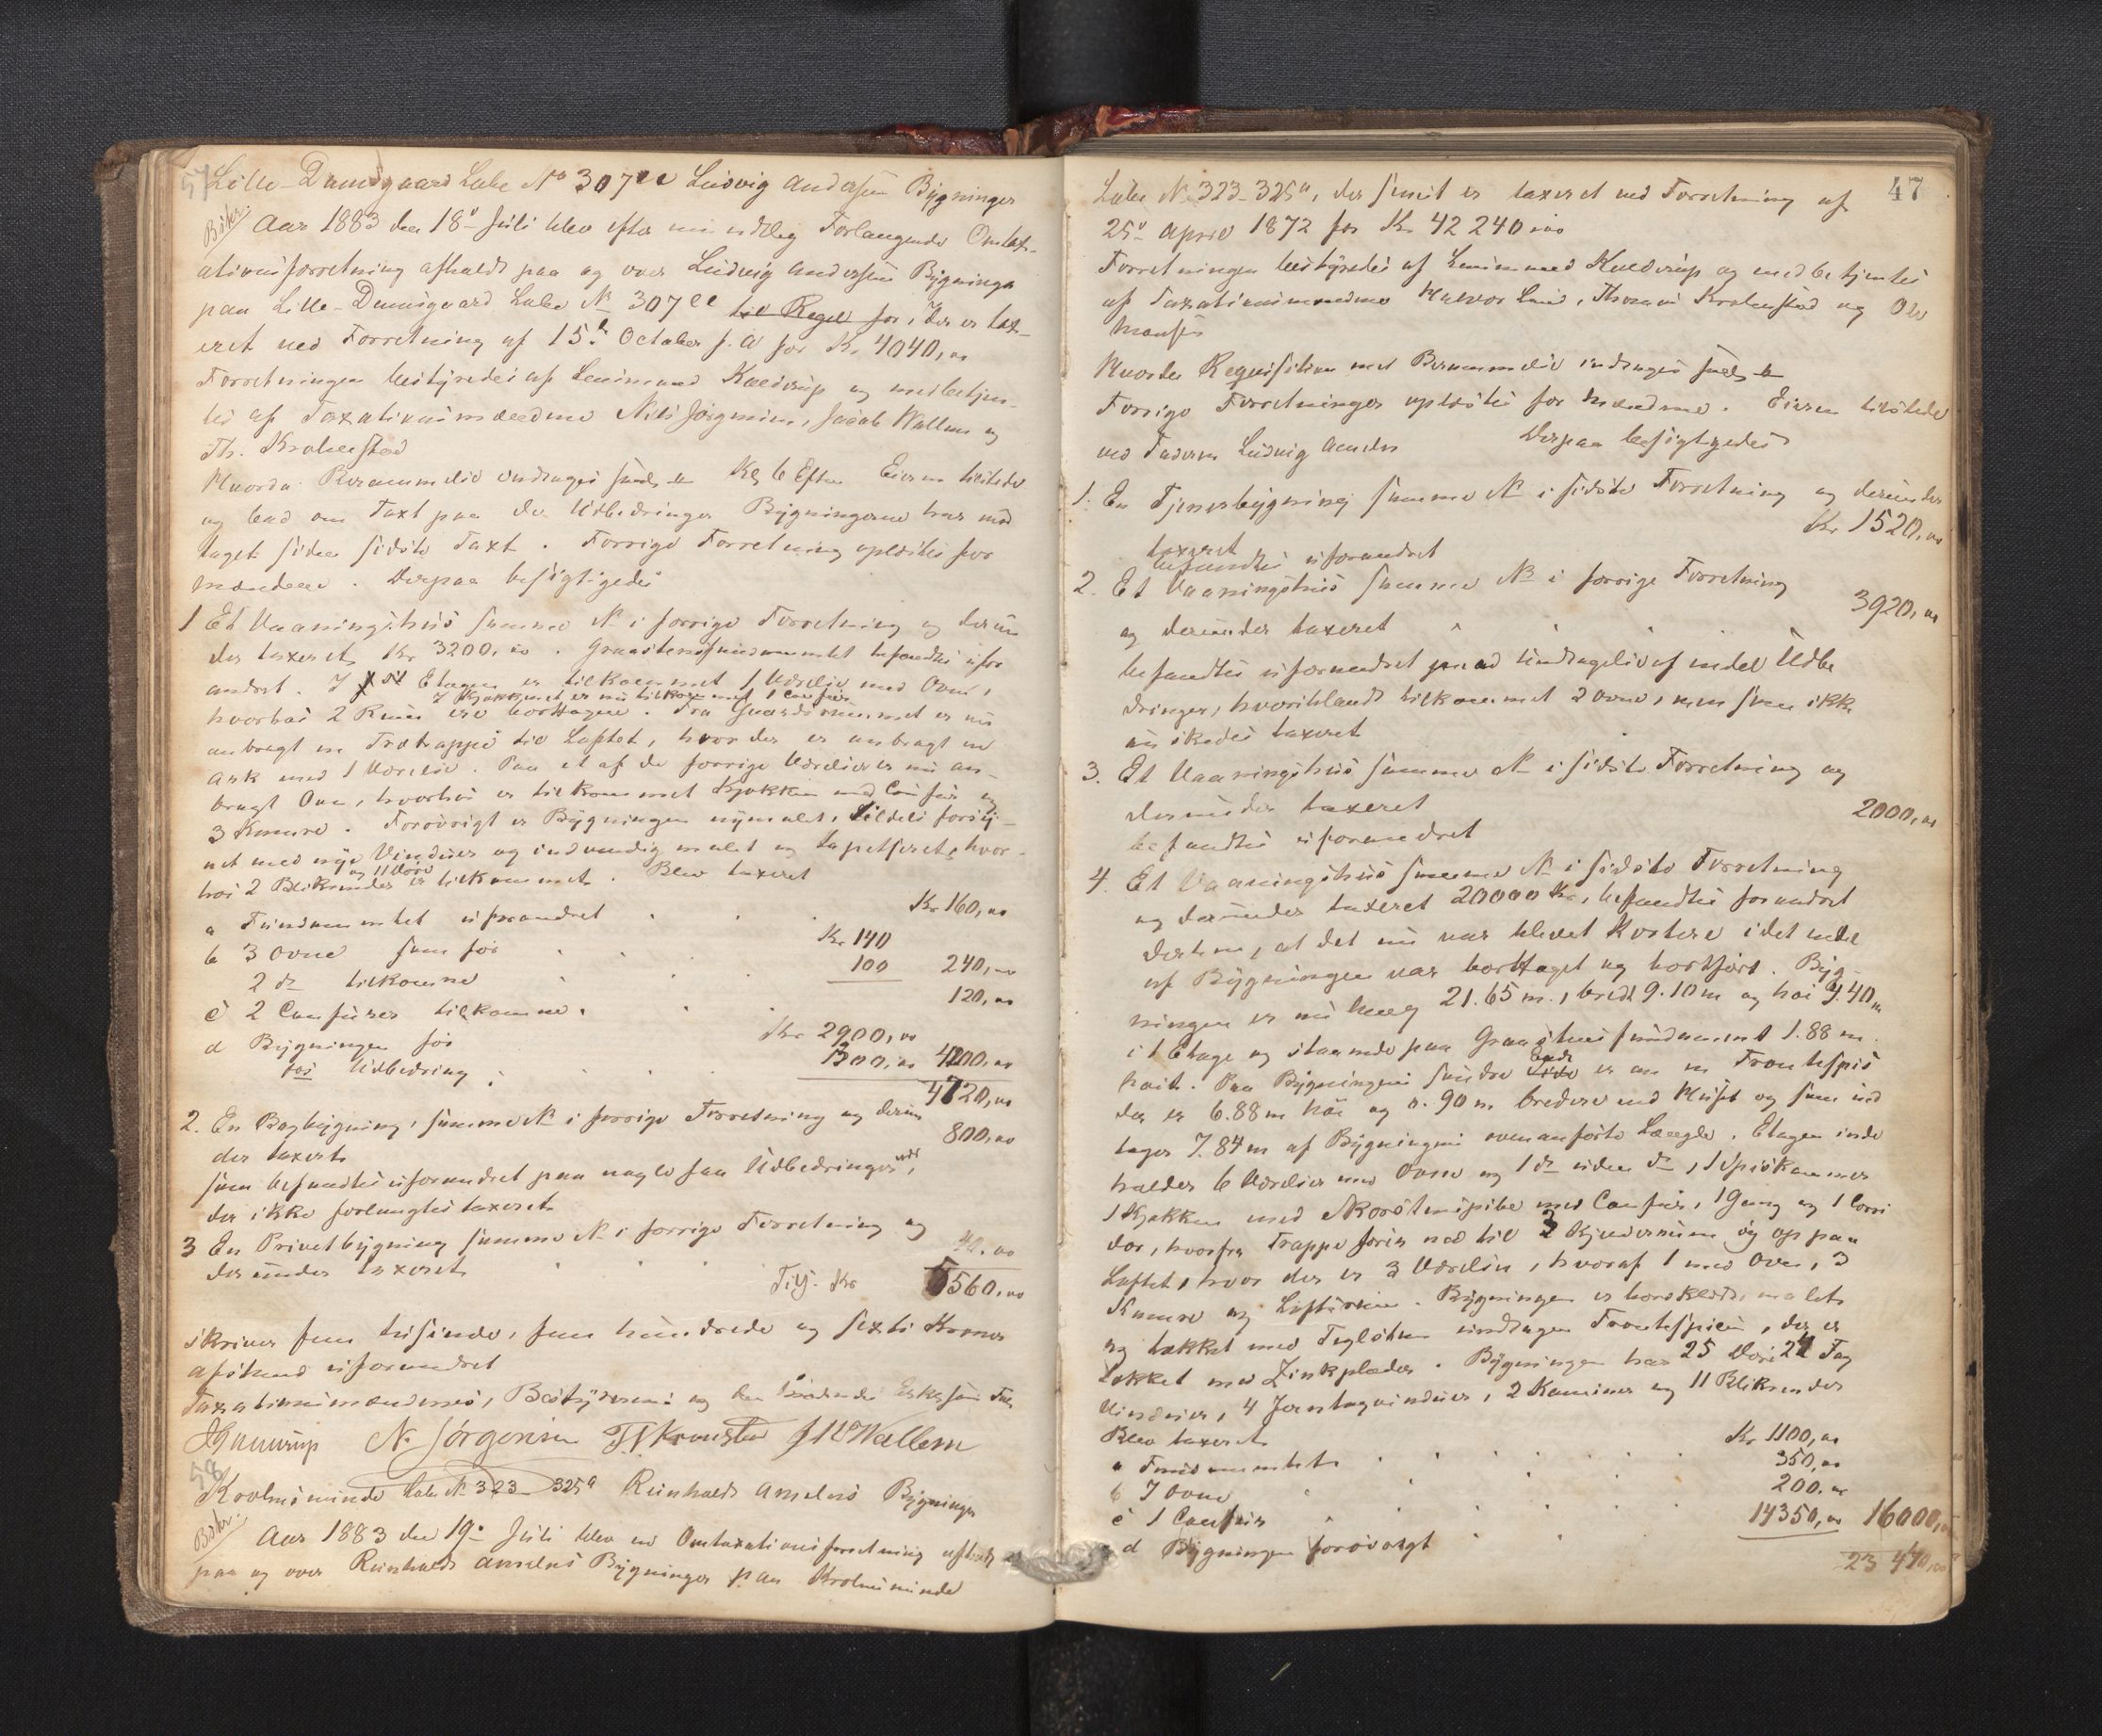 57
Lille-Damsgaard Løbe No 307ee Ludvig Andersens Bygninger
Bskr.
Aar 1883 den 18de Juli blev efter mundtlig Forlangende Omtax-
ationsforretning afholdt paa og over Ludvig Andersens Bygninger
paa Lille-Damsgaard Løbe No 307ee til Regel for, der er tax-
eret ved Forretning af 15de October f. A for Kr. 4040,00
Forretningen bestyredes af Lensmand Kulderup og medbetjen-
tes af Taxationsmændene Nils Jørgensen, Jacob Wallem og
Th. Krohnstad
Hvorda Berammelse inddroges Kl 6 Efter Eieren tilstede
og bad om Taxt paa de Udbedringer Bygningerne har mod
taget siden sidste Taxt. Forrige Forretning oplæstes for
Mændene. Derpaa besigtigedes
1 Et Vaaningshus samme No i forrige Forretning og derun
der taxeret Kr 3200,00. Graastensfundamentet befandtes ufor
andret. I 1ste Etagen er tilkommet 1 Værelse med Ovn,
I Kjøkkenet er nu tilkommet 1 Comfur
hvorhos 2 Rum ere borttagne. Fra Gaardsrummet er nu
anbragt en Trætrappe til Loftet, hvor der er anbragt en
Ark med 1 Værelse. Paa et af de forrige Værelser er nu an-
bragt Ovn, hvorhos er tilkommet Kjøkken med Comfur og
3 Kamre. Forøvrigt er Bygningen nymalet, tildels forsy-
net med nye Vinduer og indvendig malet og tapetseret, hvor-
og 11 Døre
hos 2 Blikrender er tilkommet. Blev taxeret
a Fundamentet uforandret Kr 160,00
b 3 Ovne som før Kr. 140
2 do tilkomne 100 240,00
c 2 Comfurer tilkomne. 120,00
d Bygningen før Kr. 2900,00
for Udbedring 1300,00 4200,00
4720,00
2. En Bagbygning, samme No i forrige Forretning og derun
der taxeret 800,00
som befandtes uforandret paa nogle faa Udbedringer nær,
der ikke forlangtes taxeret
3 En Privetbygning samme No i forrige Forretning og
derunder taxeret 40,00
Tilj. Kr 5560,00
skriver fem tusinde, fem hundrede og sexti Kroner
Afstand uforandret
Taxationsmændenes, Bestyrerens og
Kulderup N. Jørgensen Th Kronstad J W Wallem
58
Krohnsminde Løbe No 323-325a Reinholdt Amelns Bygninger
Bskr.
Aar 1883 den 19de Juli blev en Omtaxationsforretning afholdt
paa og over Reinholdt Amelns Bygninger paa Krohnsminde
47
Løbe No 323-325a, der senest er taxeret ved Forretning af
25de April 1872 for Kr. 42240,00
Forretningen bestyredes af Lensmand Kulderup og medbetjentes
af Taxationsmændene Halvor Lund, Thomas Krohnstad og Ole
Monsen
Hvorda Requisition med Berammelse inddroges
Forrige Forretninger oplæstes for Mændene. Eieren tilstede
ved Faderen Ludvig Ameln Derpaa besigtigedes
1. En Tjenerbygning samme No i sidste Forretning og derunder
taxeret Kr 1520,00
befandtes uforandret
2. Et Vaaningshus samme No i forrige Forretning
og derunder taxeret 3920,00
befandtes uforandret paa undtagelse af endel Udbe
dringer, hvoriblandt tilkommet 2 Ovne, men som ikke
ønskedes taxeret
3. Et Vaaningshus samme No i sidste Forretning og
derunder taxeret 2000,00
befandtes uforandret
4. Et Vaaningshus samme No i sidste Forretning
og derunder taxeret 20000 Kr., befandtes forandret
derhen, at det nu var blevet kortere idet endel
af Bygningen var borttaget og bortført. Byg-
ningen er nu lang 21.65 m., bred 9.10 m og høi 4.40 m
i 1 Etage og staaende paa Graastensfundament 1.88 m.
høit. Paa Bygningens søndre Ende er en Frontespis
der er 6.88 m høi og 0.90 m bredere end Huset og som ind
tager 7.84 m af Bygningens ovenanførte Længde. Etagen inde
holder 6 Værelser med Ovne og 1 do uden do, 1 Spiskammer
1 Kjøkken med Skorstenspibe med Comfur, 1 Gang og 1 Corri
dor, hvorfra Trappe fører ned til 3 Kjælderrum og op paa
Loftet, hvor der er 3 Værelser, hvoraf 1 med Ovn, 3
Kamre og Loftsrum. Bygningen er bordklædt, malet
og tækket med Teglsten undtagen Frontespisen, der er
tækket med Zinkplader. Bygningen har 25 Døre 24 Fag
Vinduer, 4 Jerntagvinduer, 2 Kaminer og 11 Blikrender
Blev taxeret
a Fundamentet Kr. 1100,00
b 7 Ovne 350,00
c 1 Comfur 200.00
d Bygningen forøvrigt 14350,00 16000,00
23 440,00